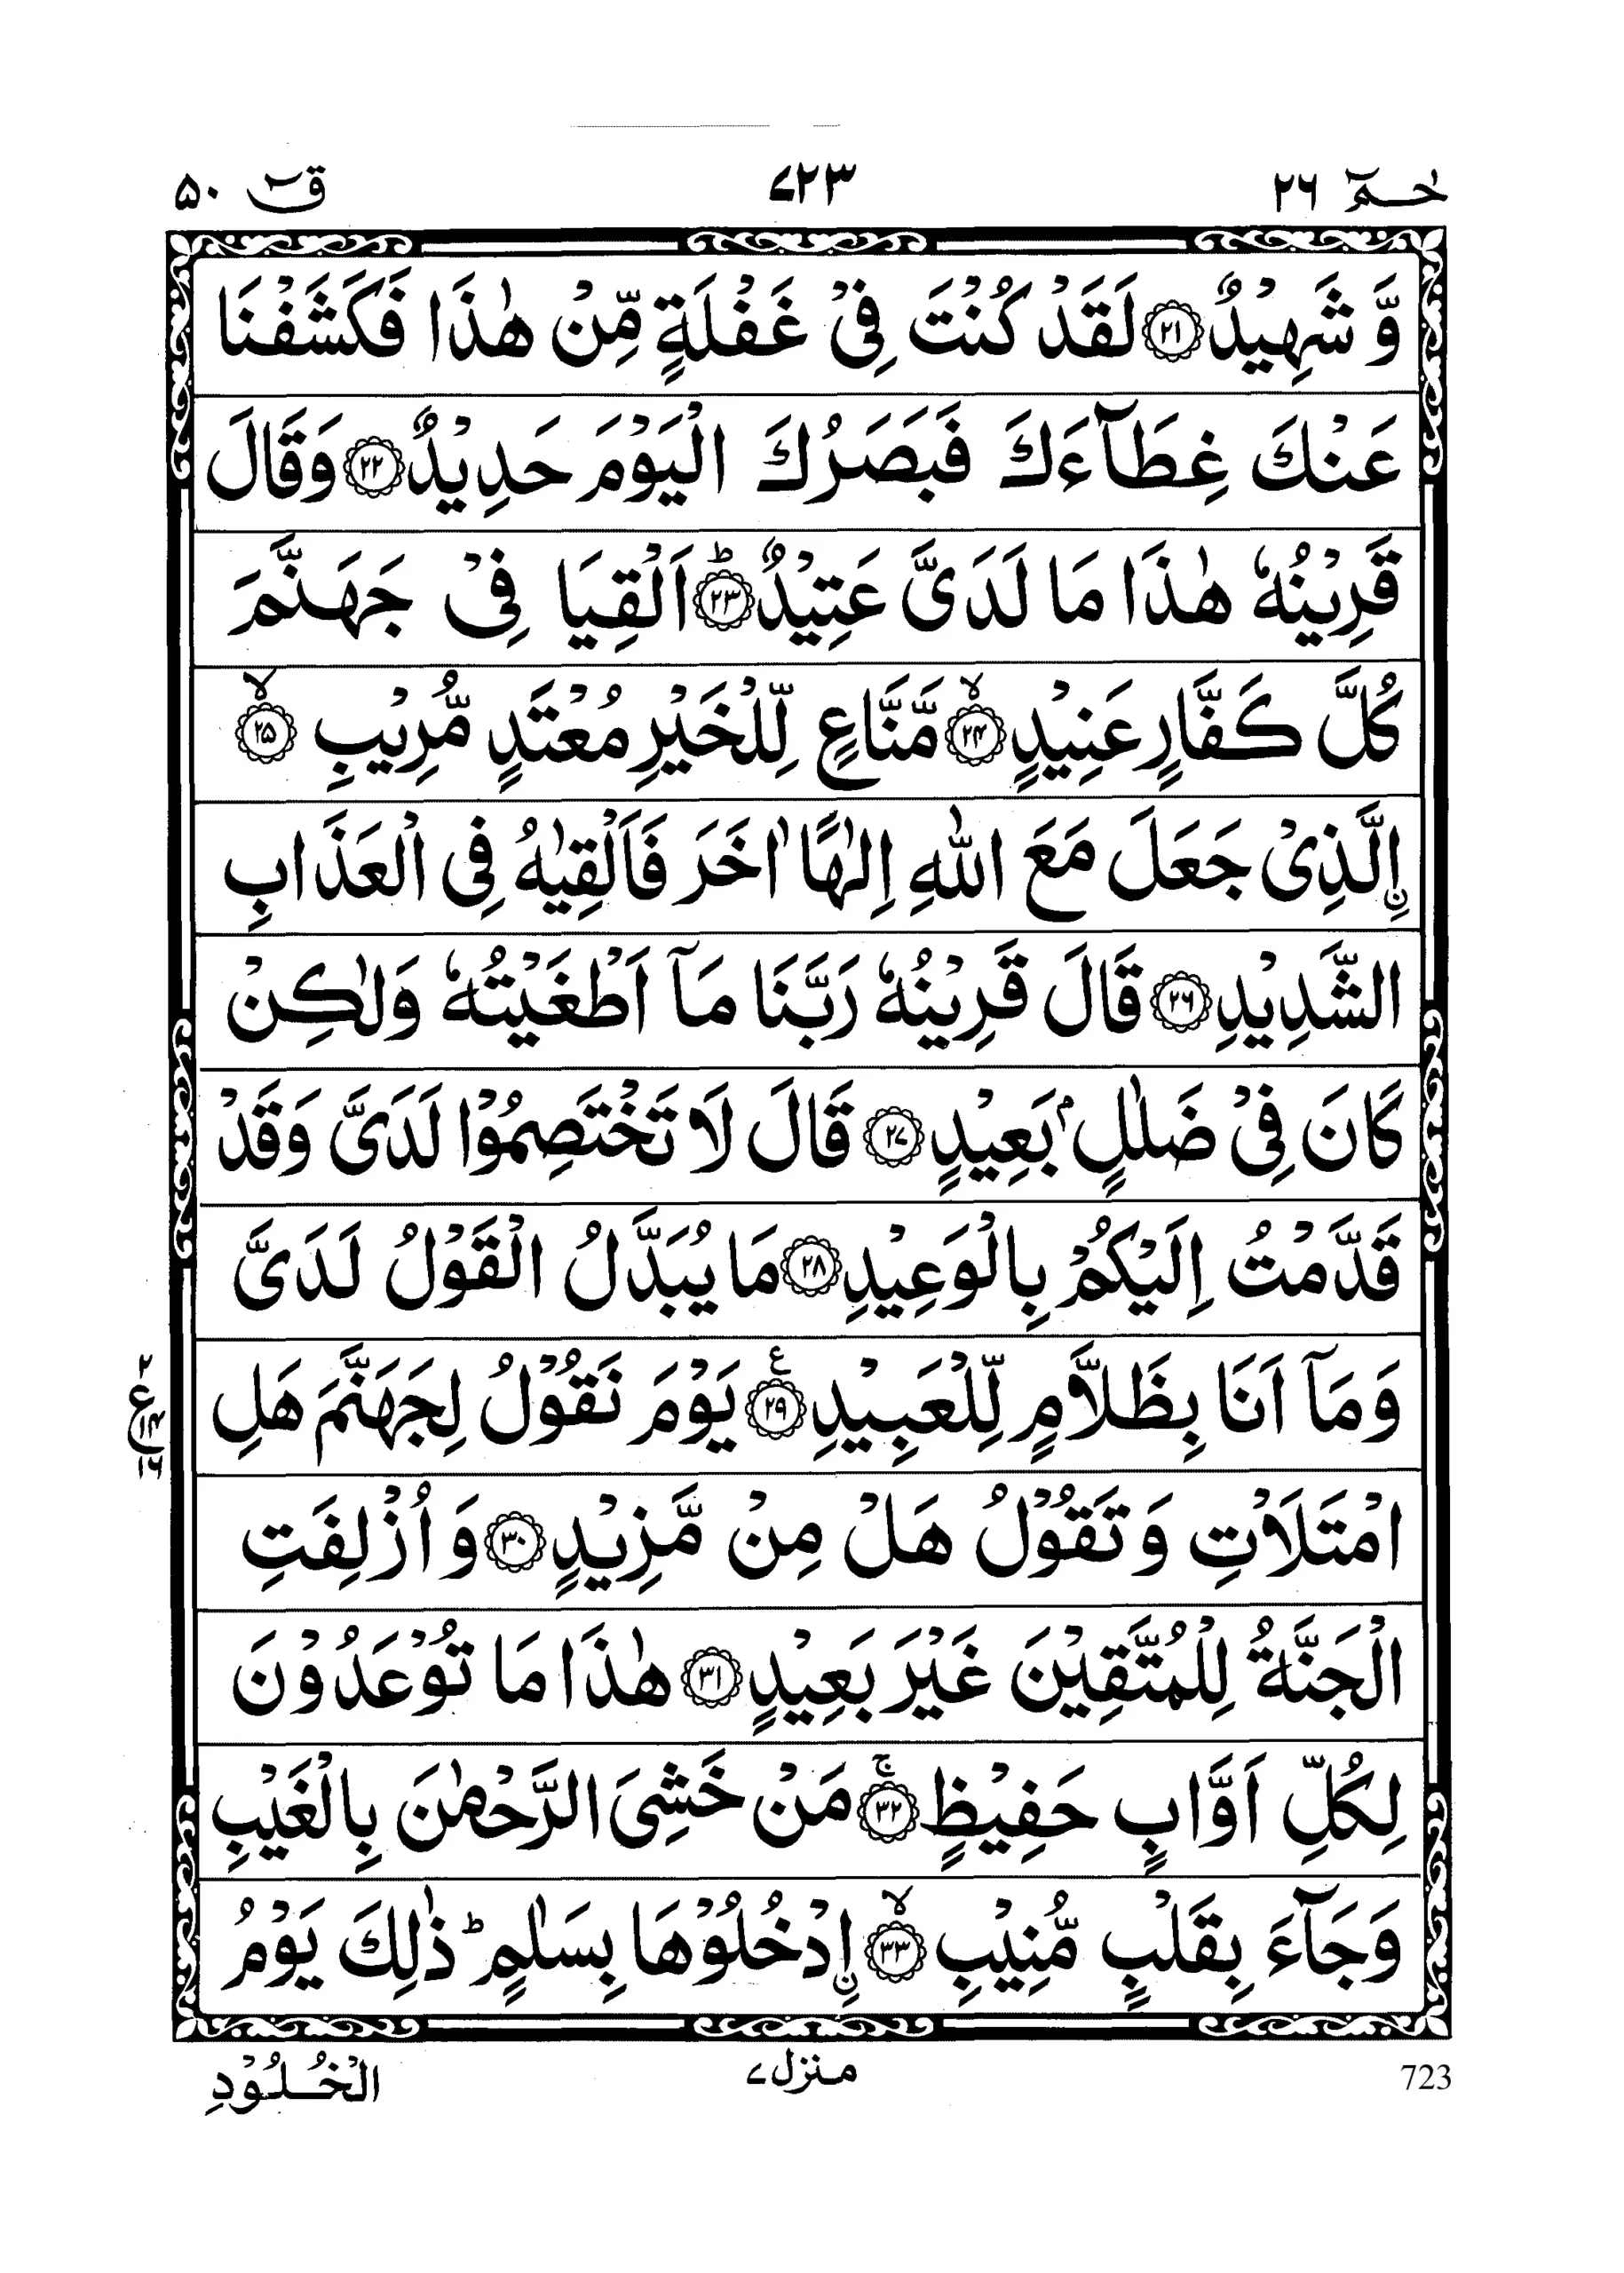 حٰـمٓ ٢٦
٧٢٣
قٓ ٥٠
وَّ شَهِيۡدٌ ﴿۲۱﴾ لَقَدۡ كُنۡتَ فِىۡ غَفۡلَةٍ مِّنۡ هٰذَا فَكَشَفۡنَا
عَنۡكَ غِطَآءَكَ فَبَصَرُكَ الۡيَوۡمَ حَدِيۡدٌ ﴿۲۲﴾ وَقَالَ
قَرِيۡنُهٗ هٰذَا مَا لَدَىَّ عَتِيۡدٌ ؕ﴿۲۳﴾ اَلۡقِيَا فِىۡ جَهَنَّمَ
كُلَّ كَفَّارٍ عَنِيۡدٍ ۙ﴿۲۴﴾ مَّنَّاعٍ لِّلۡخَيۡرِ مُعۡتَدٍ مُّرِيۡبِ ۙ﴿۲۵﴾
اۨلَّذِىۡ جَعَلَ مَعَ اللّٰهِ اِلٰهًا اٰخَرَ فَاَلۡقِيٰهُ فِى الۡعَذَابِ
الشَّدِيۡدِ ﴿۲۶﴾ قَالَ قَرِيۡنُهٗ رَبَّنَا مَاۤ اَطۡغَيۡتُهٗ وَلٰكِنۡ
كَانَ فِىۡ ضَلٰلٍۢ بَعِيۡدٍ ﴿۲۷﴾ قَالَ لَا تَخۡتَصِمُوۡا لَدَىَّ وَقَدۡ
قَدَّمۡتُ اِلَيۡكُمۡ بِالۡوَعِيۡدِ ﴿۲۸﴾ مَا يُبَدَّلُ الۡقَوۡلُ لَدَىَّ
وَمَاۤ اَنَا بِظَلَّامٍ لِّلۡعَبِيۡدِ ﴿۲۹﴾ع يَوۡمَ نَقُوۡلُ لِجَهَنَّمَ هَلِ
امۡتَلَاۡتِ وَتَقُوۡلُ هَلۡ مِنۡ مَّزِيۡدٍ ﴿۳۰﴾ وَاُزۡلِفَتِ
الۡجَنَّةُ لِلۡمُتَّقِيۡنَ غَيۡرَ بَعِيۡدٍ ﴿۳۱﴾ هٰذَا مَا تُوۡعَدُوۡنَ
لِكُلِّ اَوَّابٍ حَفِيۡظٍ ۚ﴿۳۲﴾ مَنۡ خَشِىَ الرَّحۡمٰنَ بِالۡغَيۡبِ
وَجَآءَ بِقَلۡبٍ مُّنِيۡبِ ۙ﴿۳۳﴾ اۨدۡخُلُوۡهَا بِسَلٰمٍؕ ذٰلِكَ يَوۡمُ
723
منزل ٧
الۡخُـلُوۡدِ